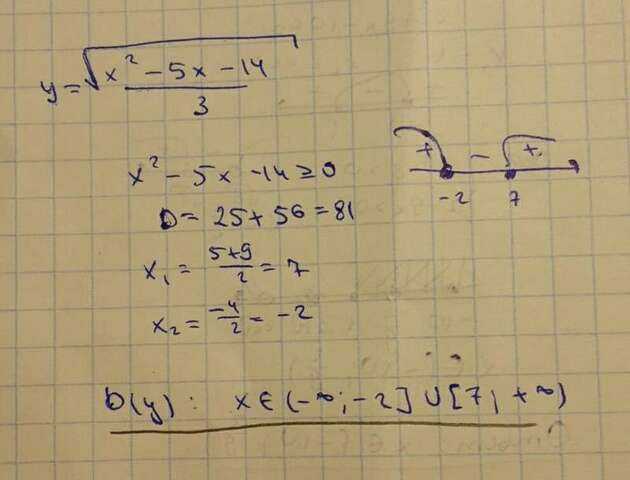 y = √(x² - 5x - 14 / 3)
x² - 5x - 14 ≥ 0
D = 25 + 56 = 81
x₁ = 5+9/2 = 7
x₂ = -4/2 = -2
+ - +
-2 7
D(y): x ∈ (-∞; -2] ∪ [7; +∞)